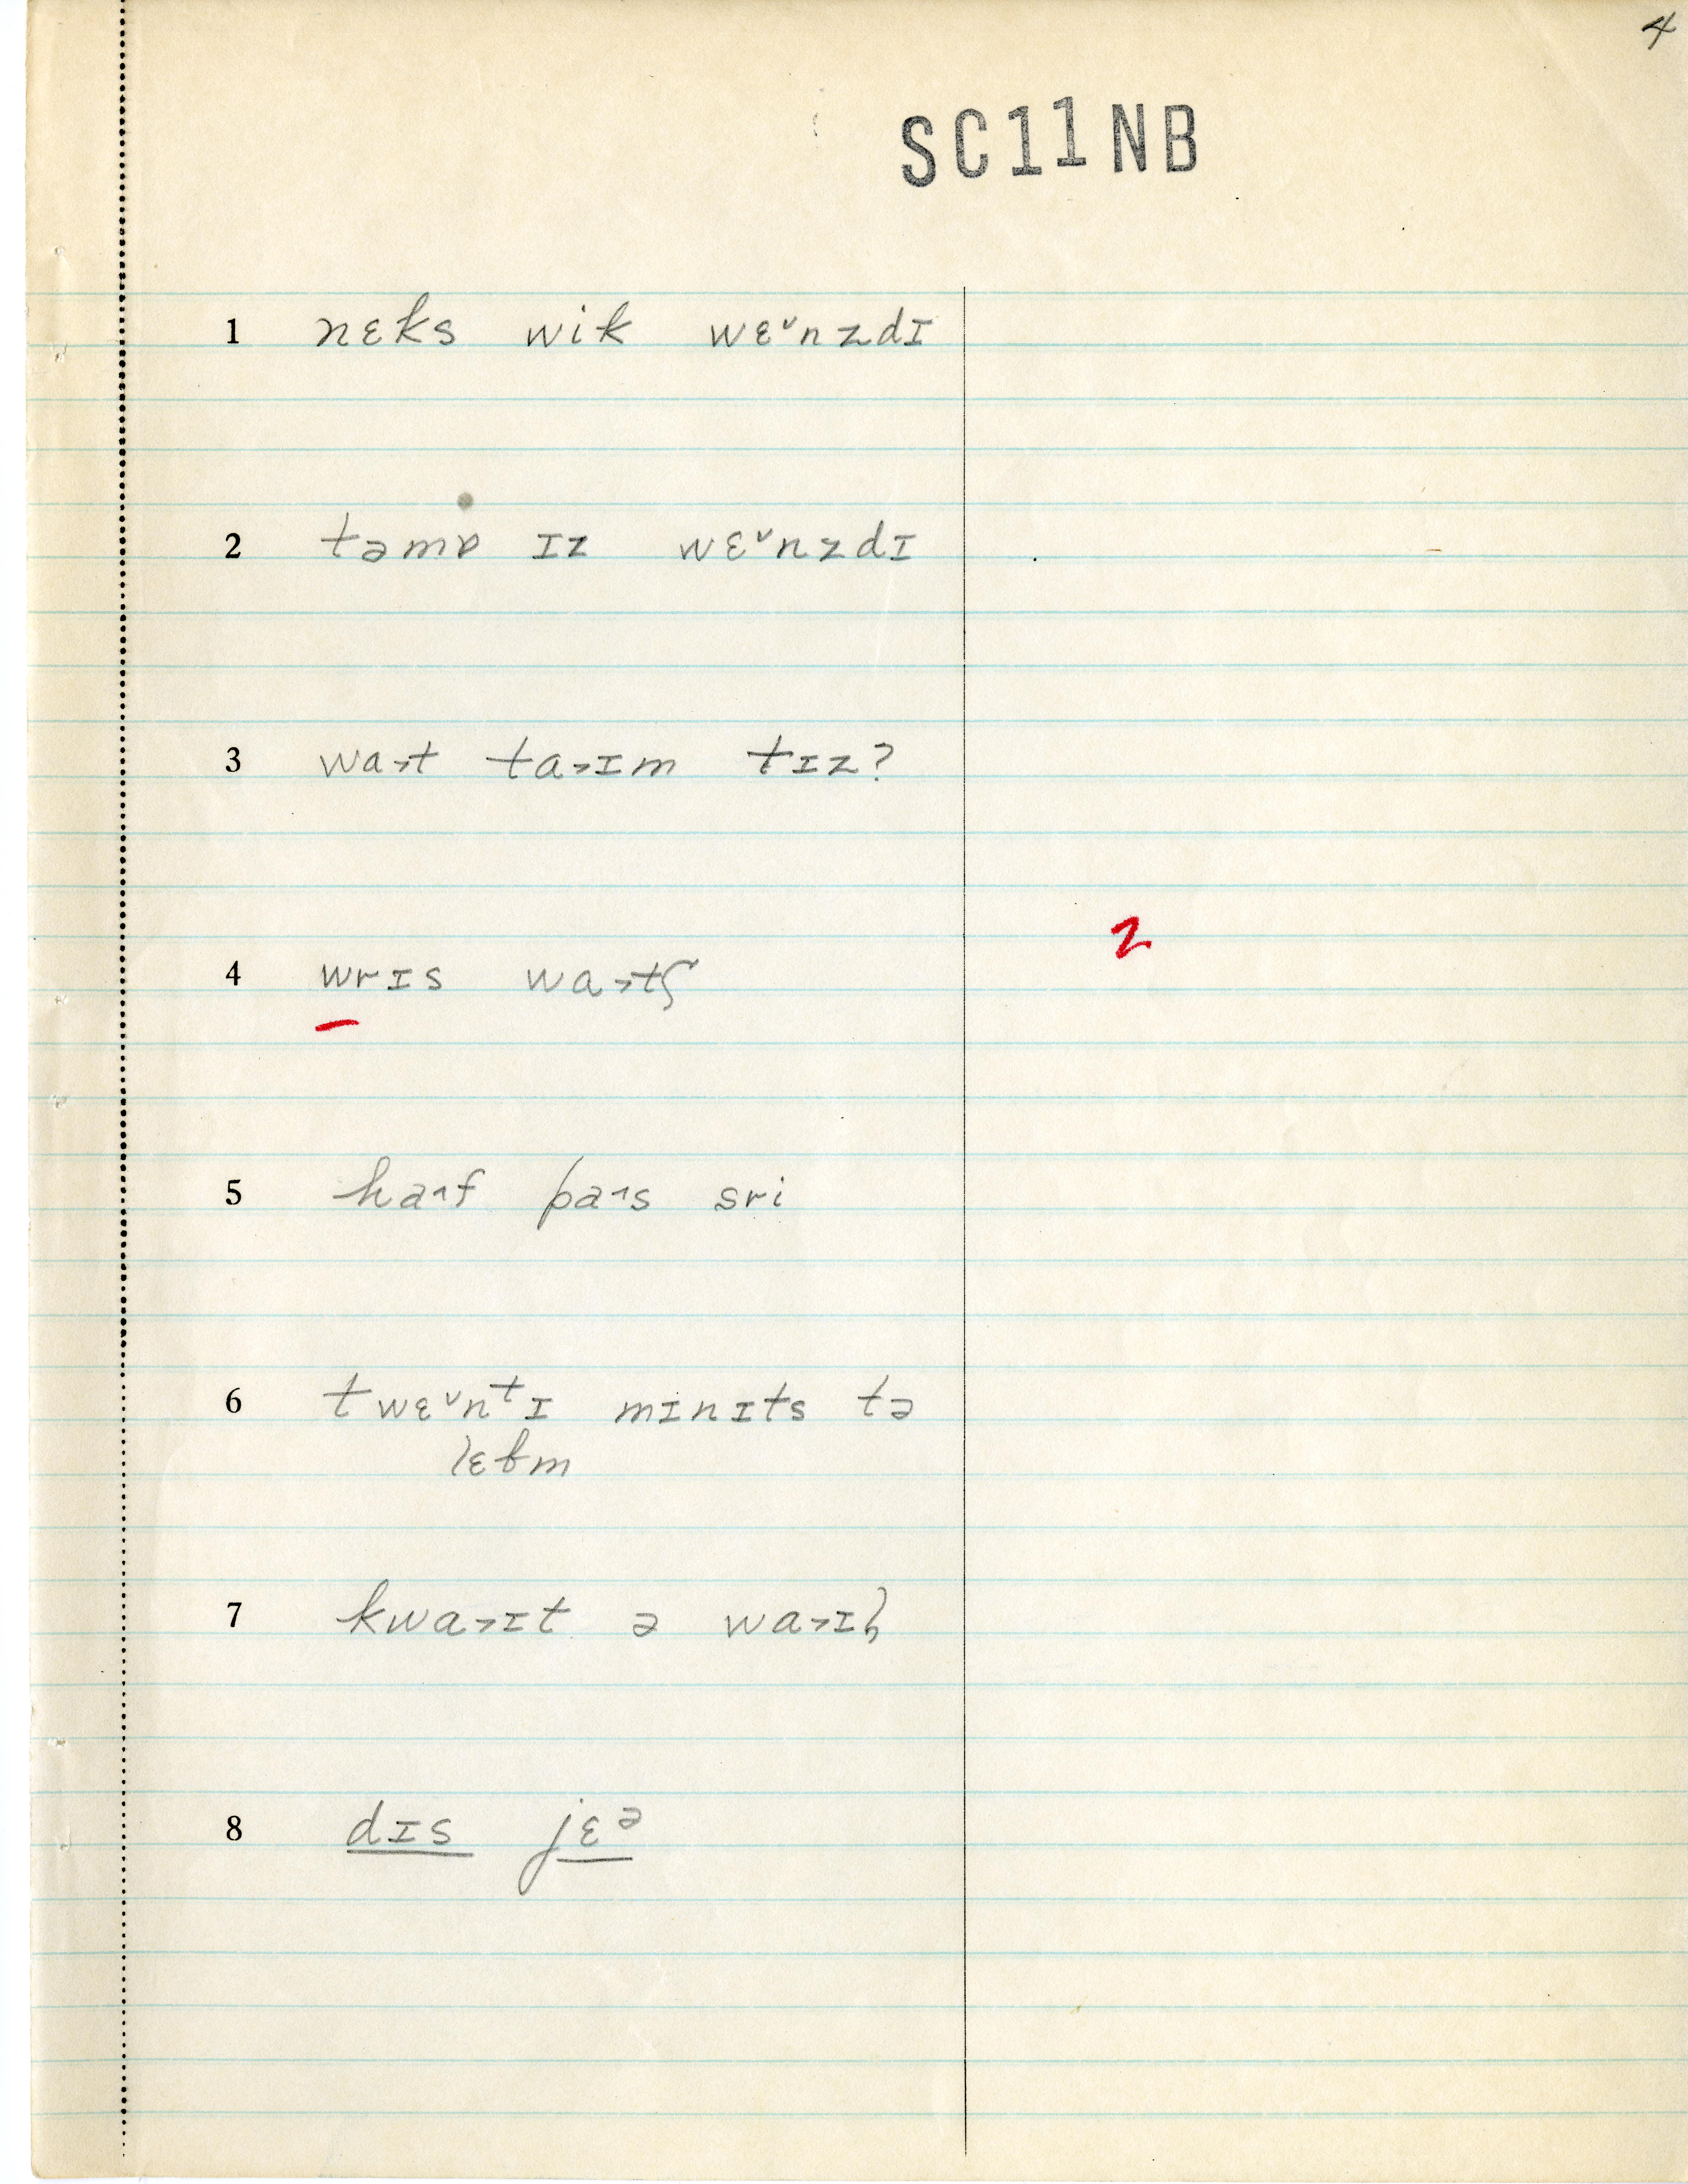 4
SC11NB
1 nɛks wik wɛ˅nzdɪ
2 təmɒ ɪz wɛ˅nzdɪ
3 wa˃t ta˃ɪm tɪz?
2
4 wrɪs wa˃tʃ
5 ha˄f pa˄s sri
6 twɛ˅nᵗɪ mɪnɪts tə
lɛbm
7 kwa˃ɪt ə wa˃ɪɫ
8 dɪs jɛᵊ